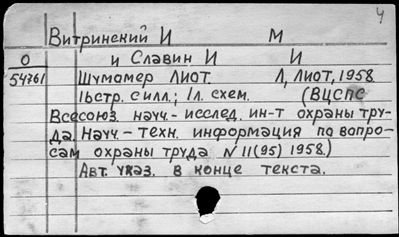 4
Витринский И М
О и Славин И И
54761 Шумомер ЛИОТ. Л, ЛИОТ, 1958
16стр. с илл.; 1л. схем. (ВЦСПС
Всесоюз. научн.-исслед. ин-т охраны тру-
да. Научн.-техн. информация по вопро-
сам охраны труда N 11(95) 1958.)
Авт. указ. в конце текста.